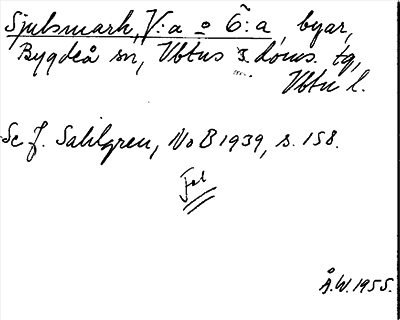 Sjulsmark, V:a o Ö:a, byar,
Bygdeå sn, Vbtns s. doms. tg,
Vbtn l.
Se J. Sahlgren, NoB 1939, s. 158.
Å.W. 1955.